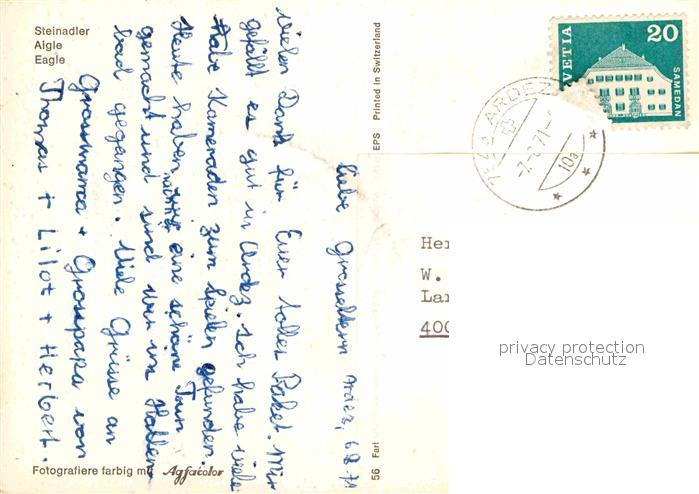 Steinadler
Aigle
Eagle
Ardez, 6.8.71
Liebe Grosseltern
Vielen Dank für Euer tolles Paket. Mir
gefällt es gut in Ardez. Ich habe viele
Kameraden zum spielen gefunden.
Heute haben wir eine schöne Tour
gemacht und sind wir ins Hallen
bad gegangen. Viele Grüsse an
Grossmama + Grosspapa von
Thomas + Lilot + Herbert.
Fotografiere farbig mit Agfacolor
EPS Printed in Switzerland
56 Farl
HELVETIA
20
SAMEDAN
ARDEZ
10a
Her
W.
Lan
400
privacy protection
Datenschutz